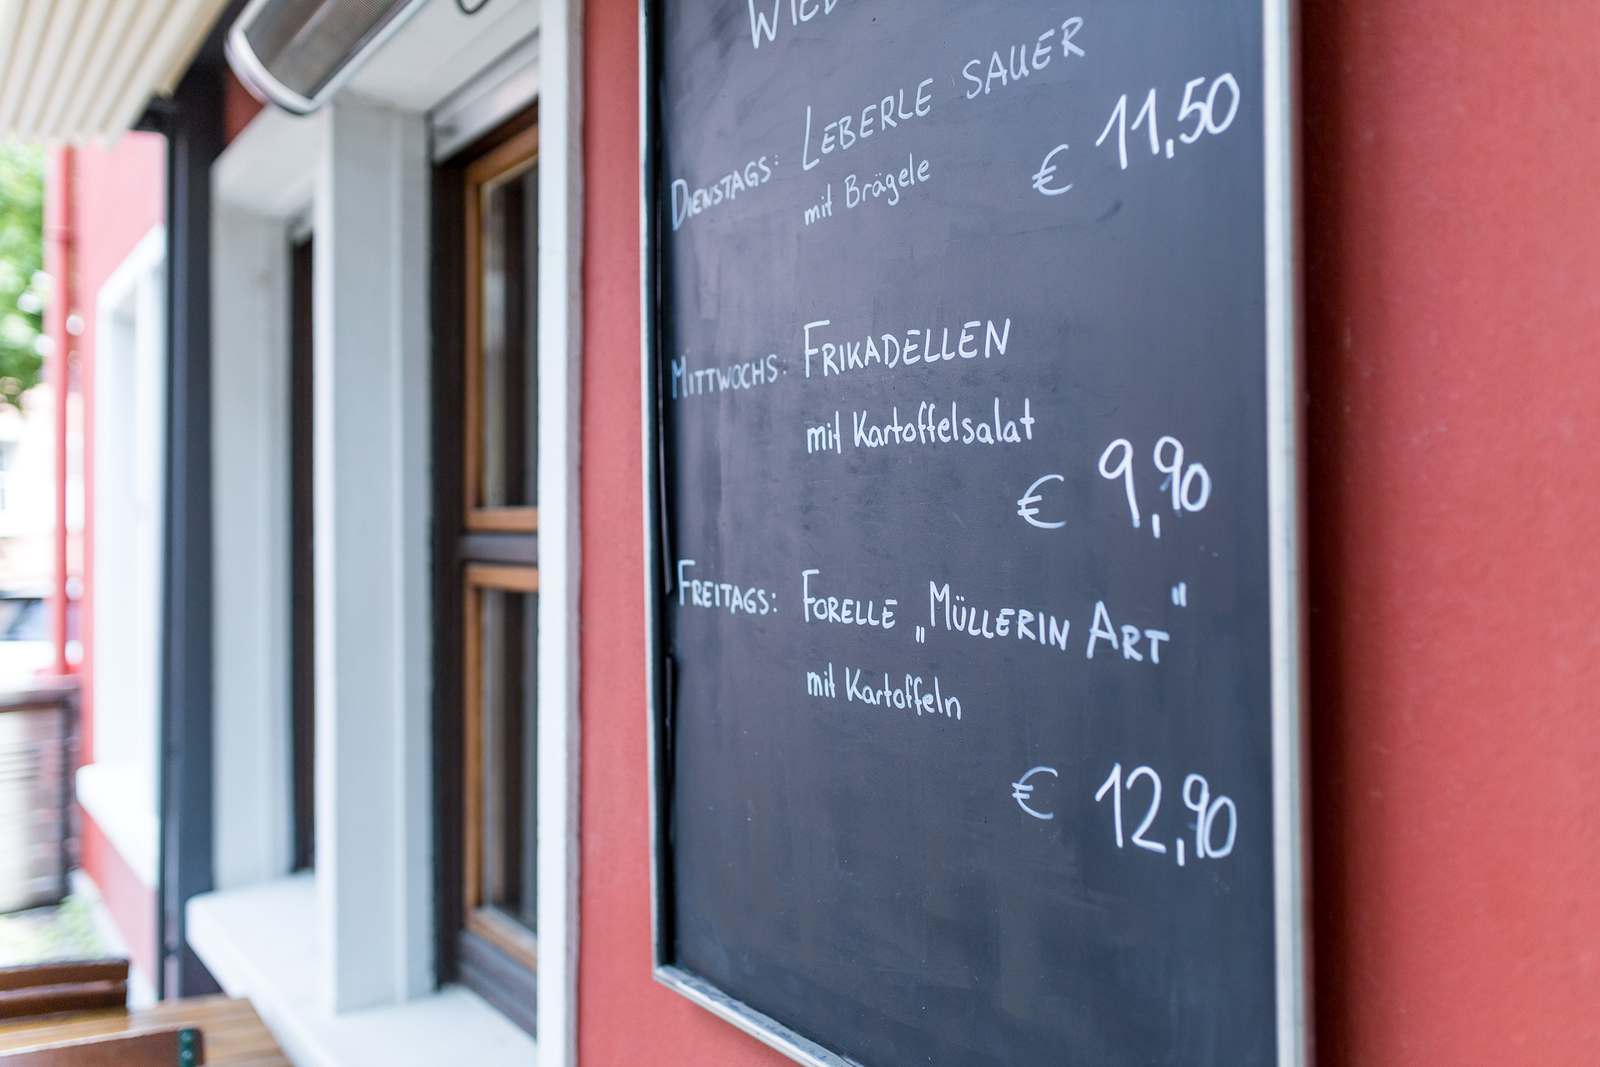 DIENSTAGS: LEBERLE SAUER
mit Brägele
€ 11,50
MITTWOCHS: FRIKADELLEN
mit Kartoffelsalat
€ 9,90
FREITAGS: FORELLE „MÜLLERIN ART"
mit Kartoffeln
€ 12,90